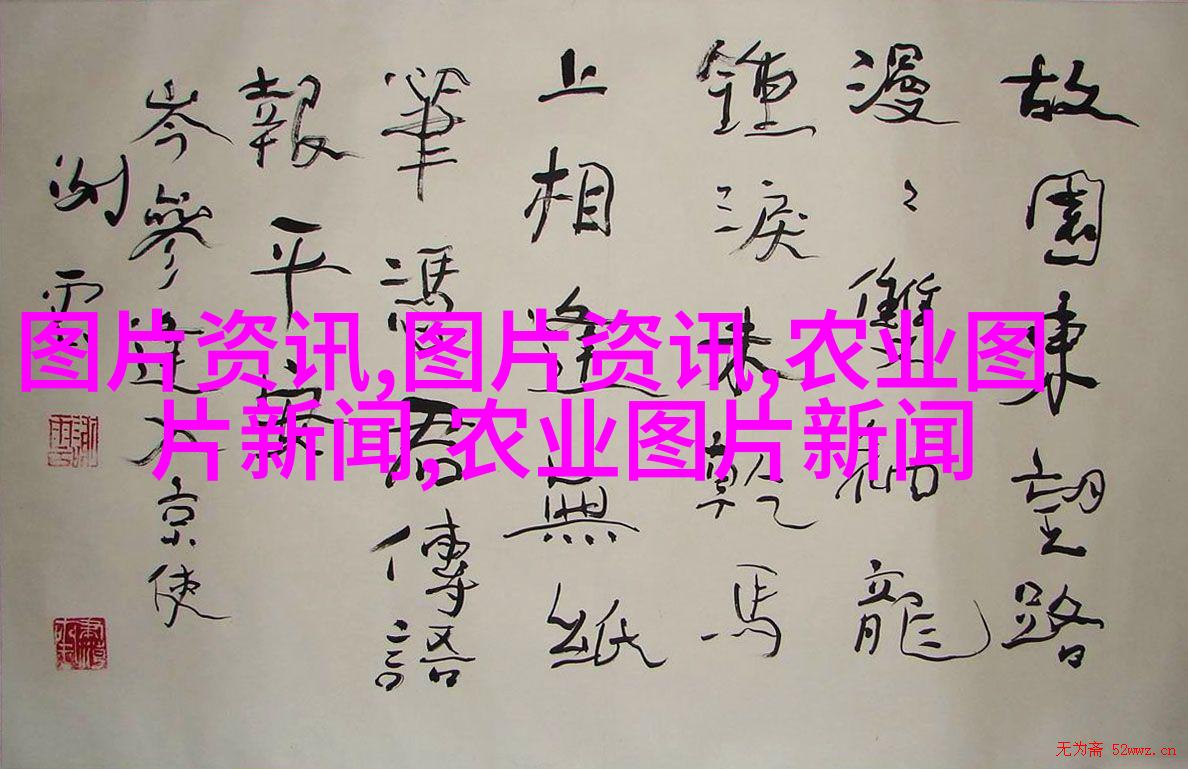 故園東望路
漫〻雙袖龍
鍾淚未乾馬
上相逢無紙
筆憑君傳語
報平安
岑參逢入京使
图片资讯,图片资讯,农业图
片新闻,农业图片新闻
无为斋 52wwz.cn